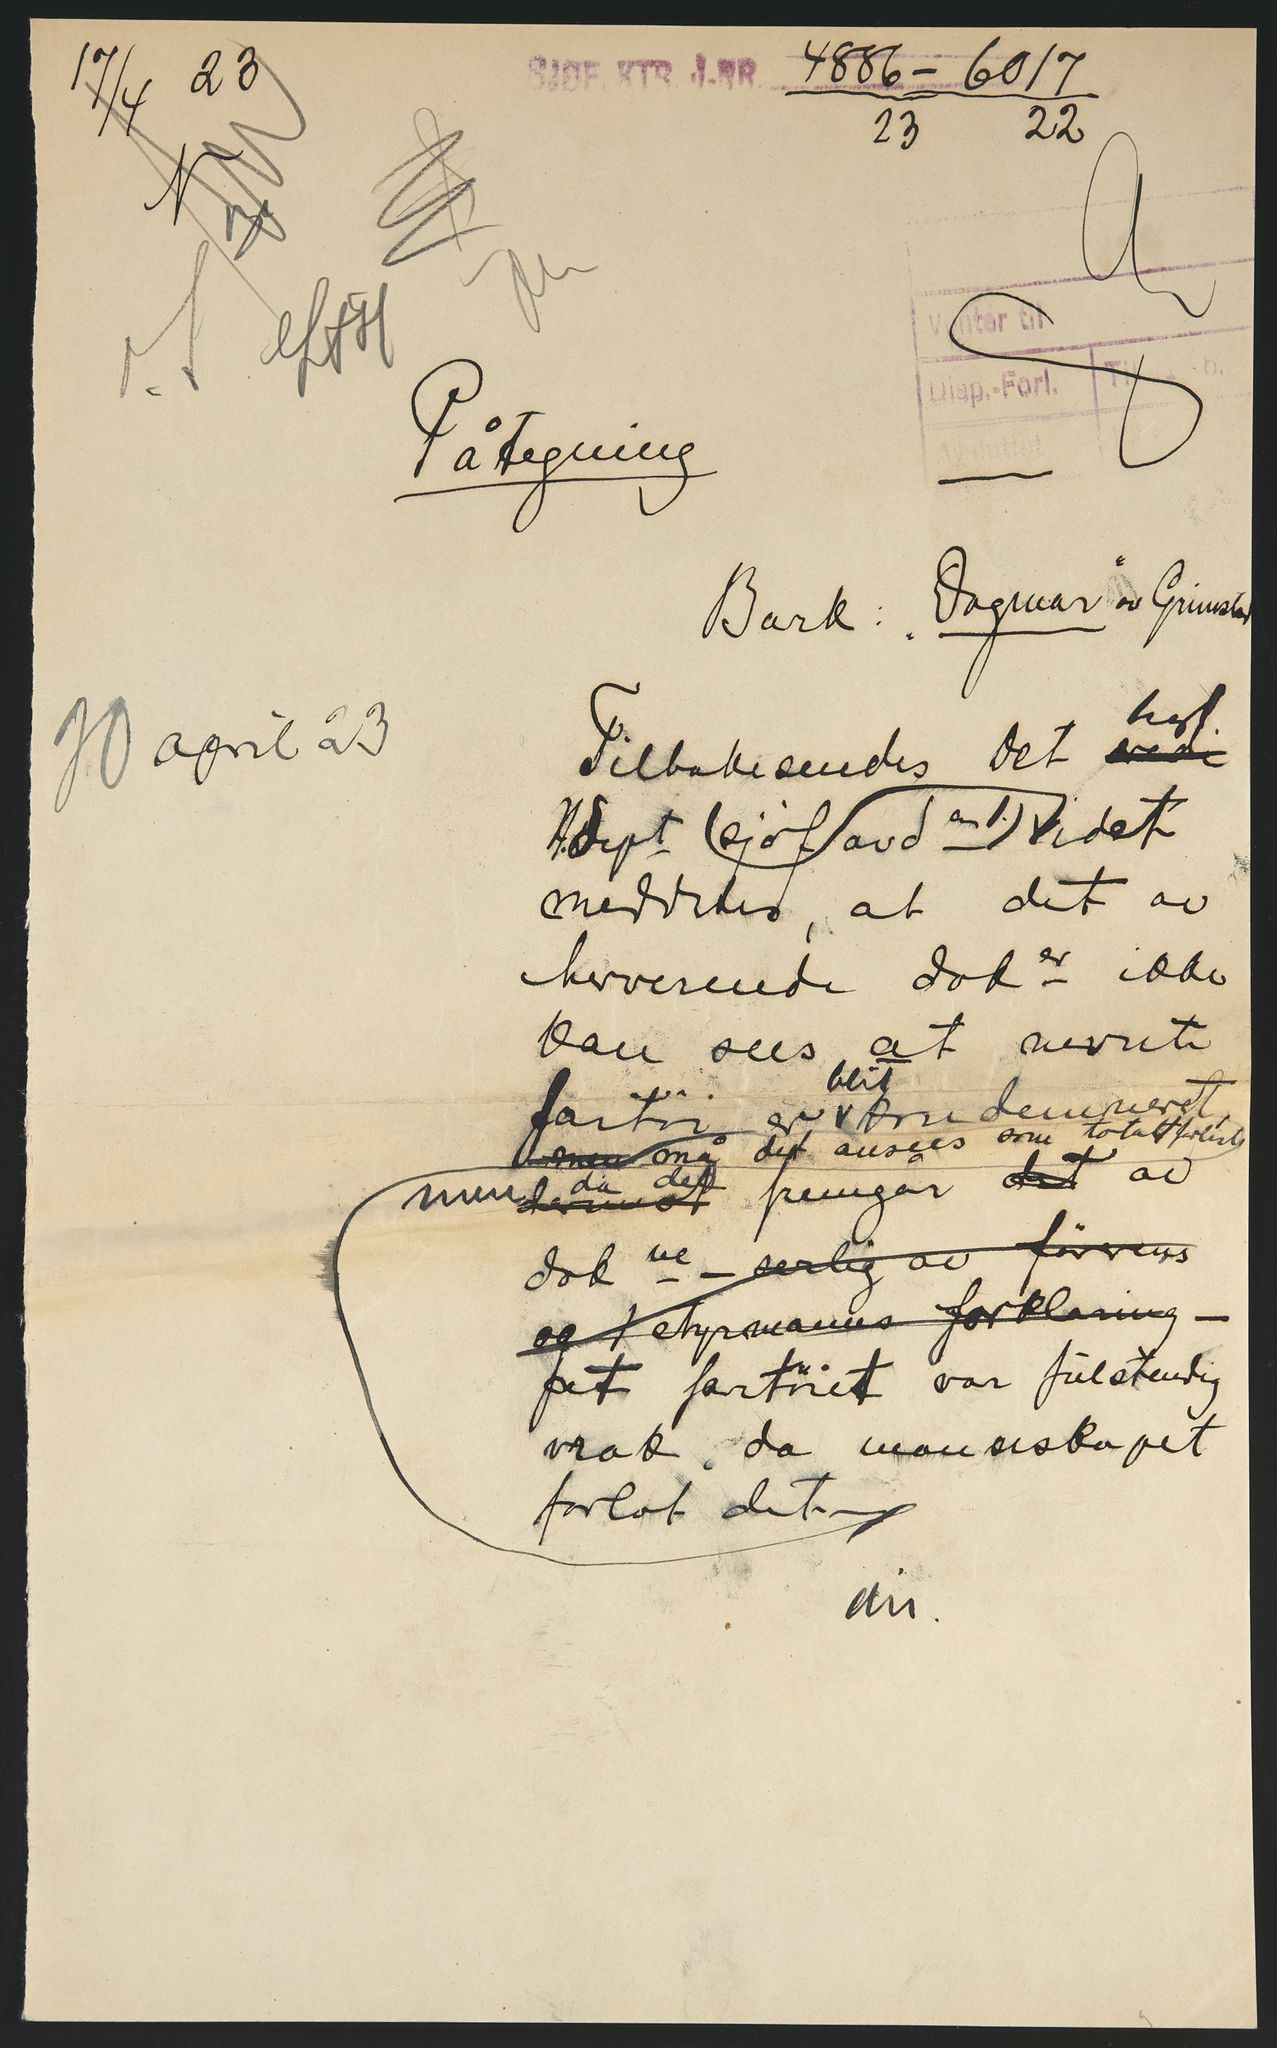 17/4 23
SJØF. KTR. J.-NR. 4886 - 6017
23 22
N
Venter til
Disp.-Forl.
Avsluttet
Påtegning
Bark: "Dagmar" av Grimstad
30 april 23
Tilbakesendes det
H.dept (sjöf avd) idet
meddeles, at det av
herværende dok er ikke
kan sees at nevnte
fartöi er blit kondemneret,
men må det ansees som totalt forlist
men da det fremgår det av
dok ne - serlig av förerens
og styrmanns forklaring -
at fartöiet var fulstendig
vrak, da mannskapet
forlot det
dir.